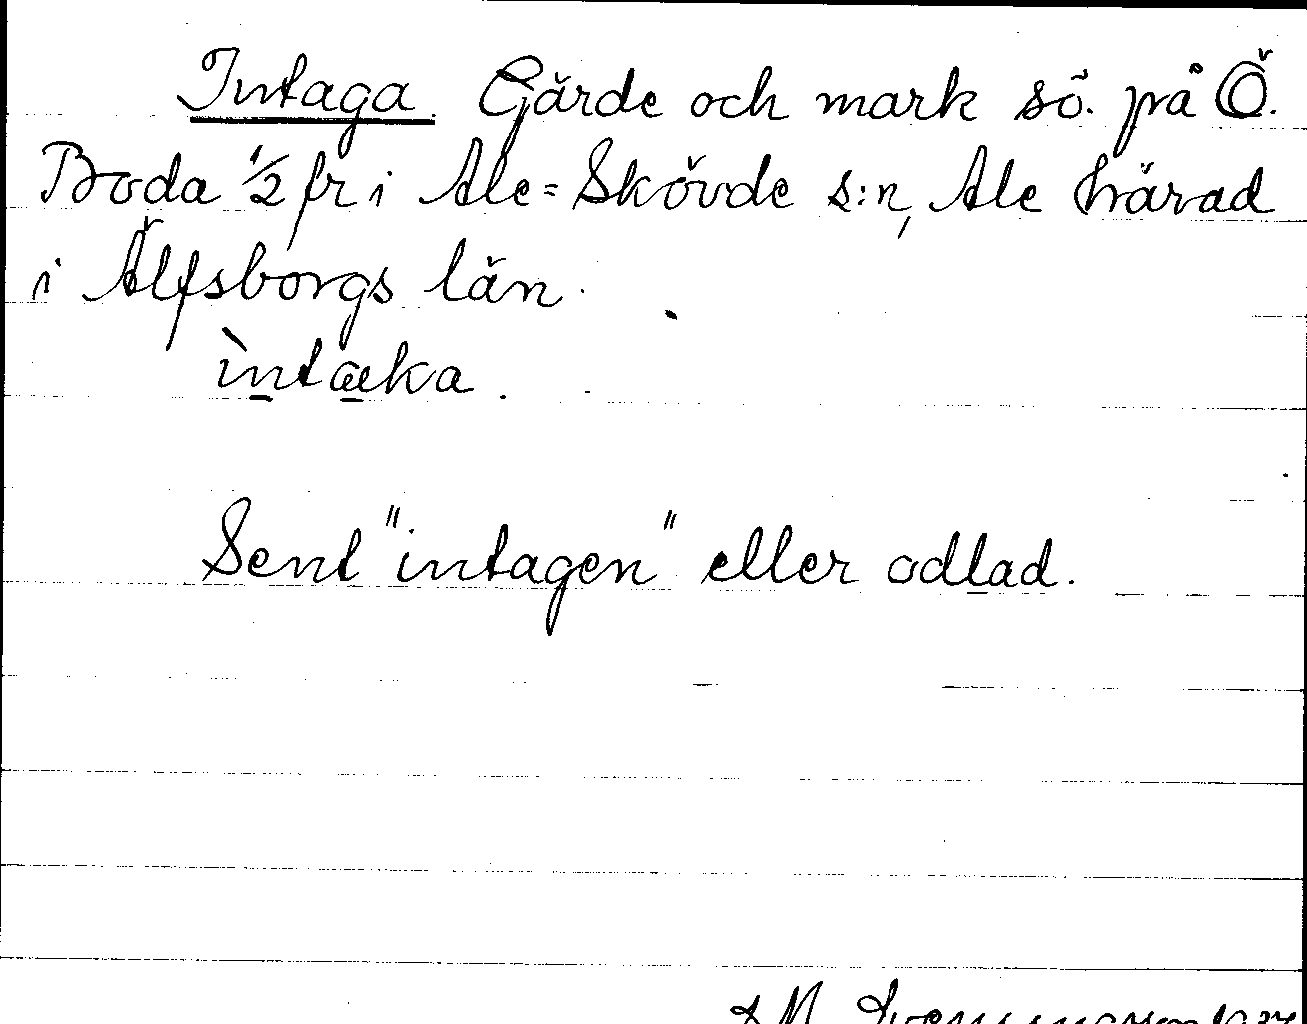 Intaga. Gärde och mark sö. på Ö.
Boda 1/2 fr i Ale=Skövde s:n, Ale härad
i Älfsborgs län.
ìntæka.
Sent "intagen" eller odlad.